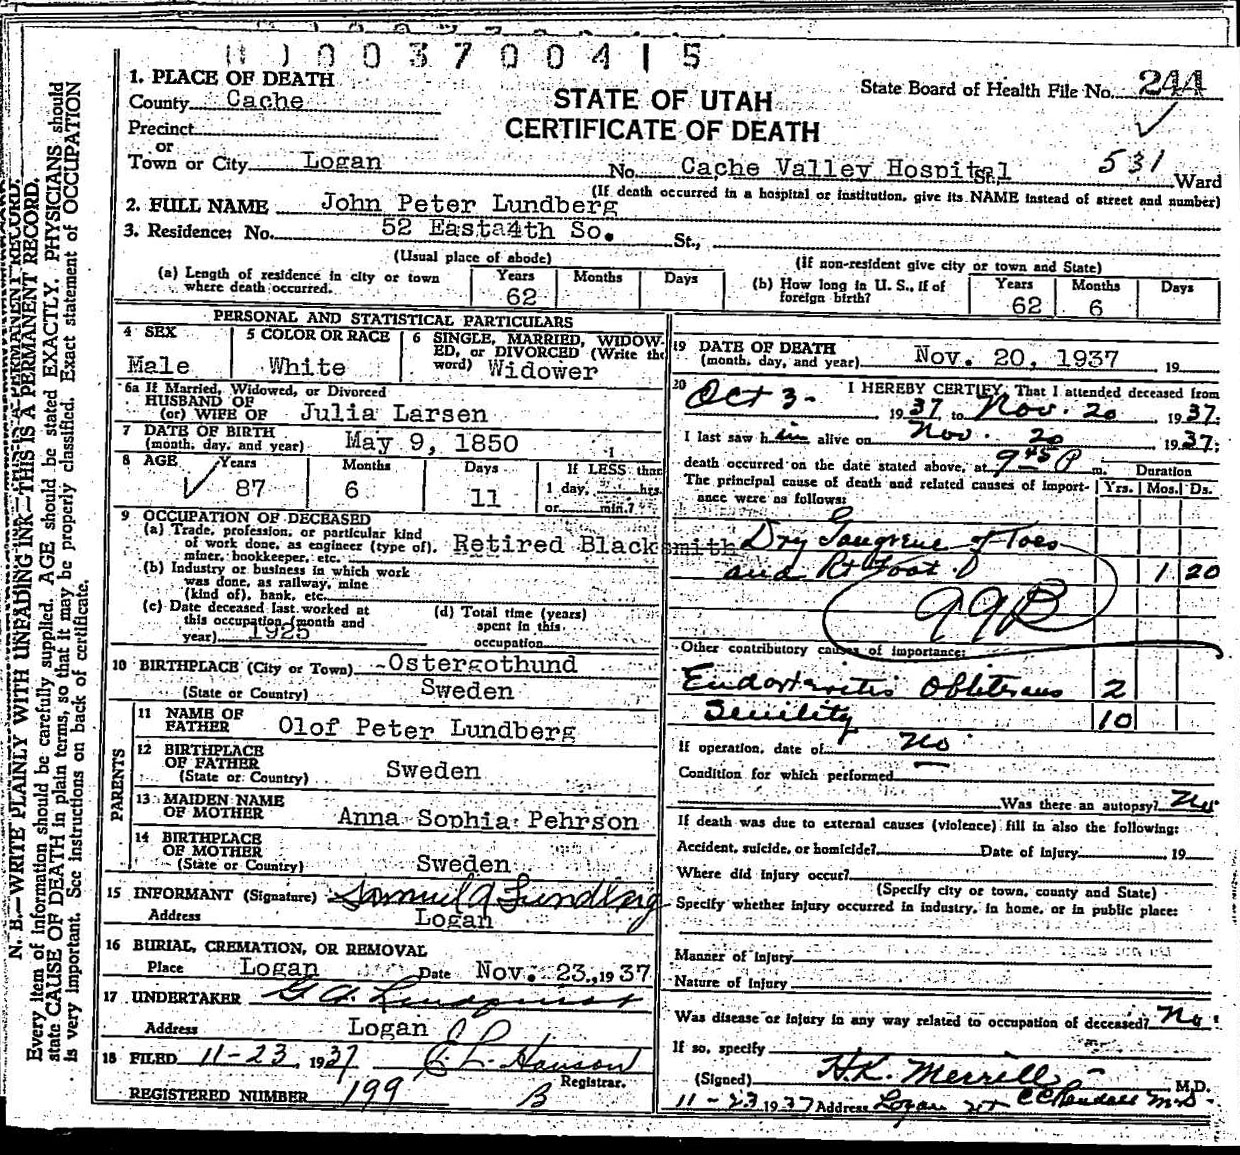 003700415
1. PLACE OF DEATH
County Cache
State Board of Health File No. 244
STATE OF UTAH
CERTIFICATE OF DEATH
Precinct
or
Town or City Logan No. Cache Valley Hospital St., 531 Ward
(If death occurred in a hospital or institution, give its NAME instead of street and number)
2. FULL NAME John Peter Lundberg
3. Residence: No. 52 Easta4th So. St.,
(Usual place of abode) (If non-resident give city or town and State)
(a) Length of residence in city or town where death occurred. Years 62 Months Days
(b) How long in U. S., if of foreign birth? Years 62 Months 6 Days
PERSONAL AND STATISTICAL PARTICULARS
4 SEX Male
5 COLOR OR RACE White
6 SINGLE, MARRIED, WIDOWED, or DIVORCED (Write the word) Widower
6a If Married, Widowed, or Divorced
HUSBAND OF
(or) WIFE OF Julia Larsen
7 DATE OF BIRTH
(month, day, and year) May 9, 1850
8 AGE Years 87 Months 6 Days 11 If LESS than 1 day, hrs. or min.?
9 OCCUPATION OF DECEASED
(a) Trade, profession, or particular kind
of work done, as engineer (type of), Retired Blacksmith
miner, bookkeeper, etc.
(b) Industry or business in which work
was done, as railway, mine
(kind of), bank, etc.
(c) Date deceased last worked at
this occupation (month and
year) 1925
(d) Total time (years)
spent in this
occupation
10 BIRTHPLACE (City or Town) Ostergothund
(State or Country) Sweden
PARENTS
11 NAME OF
FATHER Olof Peter Lundberg
12 BIRTHPLACE
OF FATHER
(State or Country) Sweden
13 MAIDEN NAME
OF MOTHER Anna Sophia Pehrson
14 BIRTHPLACE
OF MOTHER
(State or Country) Sweden
15 INFORMANT (Signature) Samuel A Lundberg
Address Logan
16 BURIAL, CREMATION, OR REMOVAL
Place Logan Date Nov. 23, 1937
17 UNDERTAKER G A Lundquist
Address Logan
18 FILED 11-23, 1937 E. L. Hanson
Registrar.
REGISTERED NUMBER 199 B
19 DATE OF DEATH
(month, day, and year) Nov. 20, 1937 19
20 I HEREBY CERTIFY, That I attended deceased from
Oct 3- 1937 to Nov. 20 1937:
I last saw him alive on Nov. 20 1937:
death occurred on the date stated above, at 9 45 P m.
Duration
The principal cause of death and related causes of importance were as follows: Yrs. Mos. Ds.
Dry Gangrene of Toes
and Rt foot 1 20
99B
Other contributory causes of importance:
Endarteritis Obliterans 2
Senility 10
If operation, date of No
Condition for which performed
Was there an autopsy? No
If death was due to external causes (violence) fill in also the following:
Accident, suicide, or homicide? Date of injury 19
Where did injury occur?
(Specify city or town, county and State)
Specify whether injury occurred in industry, in home, or in public place:
Manner of Injury
Nature of Injury
Was disease or injury in any way related to occupation of deceased? No
If so, specify
(Signed) H.K. Merrill M.D.
11-23 1937 Address Logan Ut C C Randall M.D.
N. B.—WRITE PLAINLY WITH UNFADING INK—THIS IS A PERMANENT RECORD.
Every item of information should be carefully supplied. AGE should be stated EXACTLY. PHYSICIANS should
state CAUSE OF DEATH in plain terms, so that it may be properly classified. Exact statement of OCCUPATION
is very important. See instructions on back of certificate.